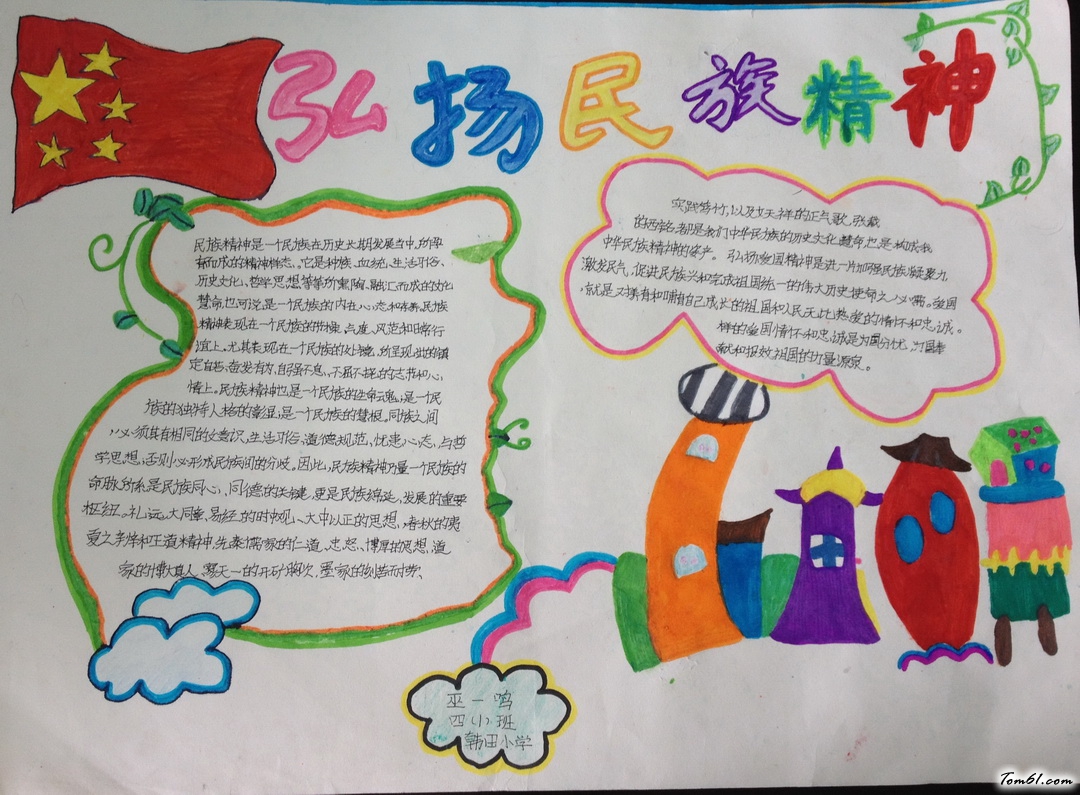 弘扬民族精神
民族精神是一个民族在历史长期发展当中,所孕
育而成的精神样态。它是种族、血统、生活习俗、
历史文化、哲学思想等等所熏陶、融汇而成的文化
慧命,也可说是一个民族的内在心态和存养。民族
精神表现在一个民族的节操、气度、风范和日常行
谊上。尤其表现在一个民族的处境,所呈现出的镇
定自若、奋发有为、自强不息、不屈不挠的志节和心
情上。民族精神也是一个民族的生命元魂,是一个民
族的独特人格的彰显,是一个民族的慧根。同族之间
必须具有相同的文意识、生活习俗、道德规范、忧患心态、与哲
学思想,否则必形成民族间的分歧。因此,民族精神乃是一个民族的
命脉所系是民族同心、同德的关键,更是民族绵延、发展的重要
枢纽。礼运、大同章、易经、的时中观、大中以正的思想、春秋的夷
夏之辨和王道精神、先秦儒家的仁道、忠恕、博厚的思想、道
家的博大真人、寥天一的开矿胸次、墨家的刻苦而劳、
实践笃行,以及文天祥的正气歌,张载
的西铭,都是我们中华民族的历史文化慧命,也是构成我
中华民族精神的资产。弘扬爱国精神是进一步加强民族凝聚力,
激发民气,促进民族兴和完成祖国统一的伟大历史使命之必需。爱国
,就是对拥有和哺育自己成长的祖国和人民无比热爱的情怀和忠诚。
样的爱国情怀和忠诚是为国分忧、为国奉
献和报效祖国的力量源泉。
巫一鸣
四(1)班
韩田小学
Tom61.com